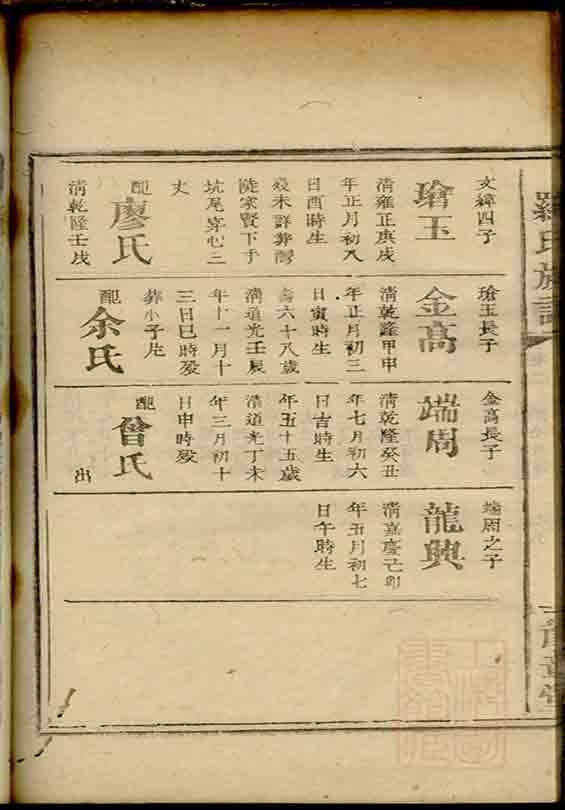 羅氏族譜
文緯四子
瑲玉
清雍正庚戌
年正月初八
日酉時生
歿未詳葬灣
陡家賢下手
坑尾穿心三
丈
配廖氏
清乾隆壬戌
瑲玉長子
金高
清乾隆甲申
年正月初三
日寅時生
壽六十八歲
清道光壬辰
年十一月十
三日巳時歿
葬小子片
配余氏
金高長子
端周
清乾隆癸丑
年七月初六
日吉時生
年五十五歲
清道光丁未
年三月初十
日申時歿
配曾氏
出
端周之子
龍興
清嘉慶己卯
年五月初七
日午時生